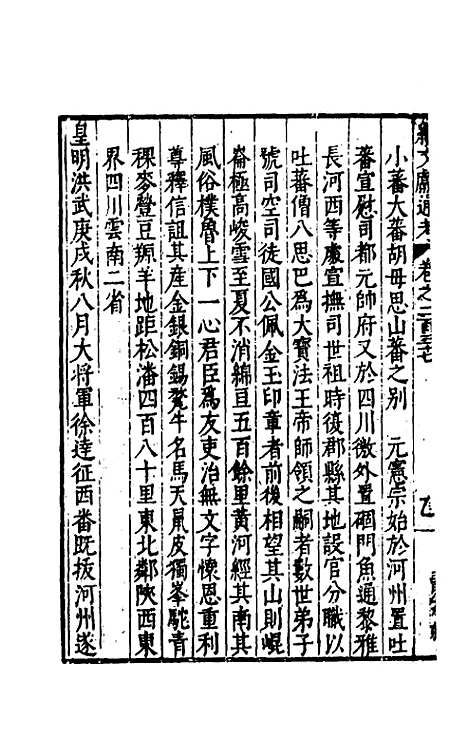 續文獻通考 卷之二百三十七
小蕃大蕃胡母思山蕃之别 元憲宗始於河州置吐
蕃宣慰司都元帥府又於四川徼外置碉門魚通黎雅
長河西等處宣撫司世祖時復郡縣其地設官分職以
吐蕃僧八思巴爲大寶法王帝師領之嗣者數世弟子
號司空司徒國公佩金玉印章者前後相望其山則崐
崙極高峻雪至夏不消綿亘五百餘里黃河經其南其
風俗樸魯上下一心君臣爲友吏治無文字懷恩重利
尊釋信詛其產金銀銅錫犛牛名馬天鼠皮獨峯駝青
稞麥㽅豆羱羊地距松潘四百八十里東北鄰陜西東
界四川雲南二省
皇明洪武庚戌秋八月大將軍徐達征西番既拔河州遂